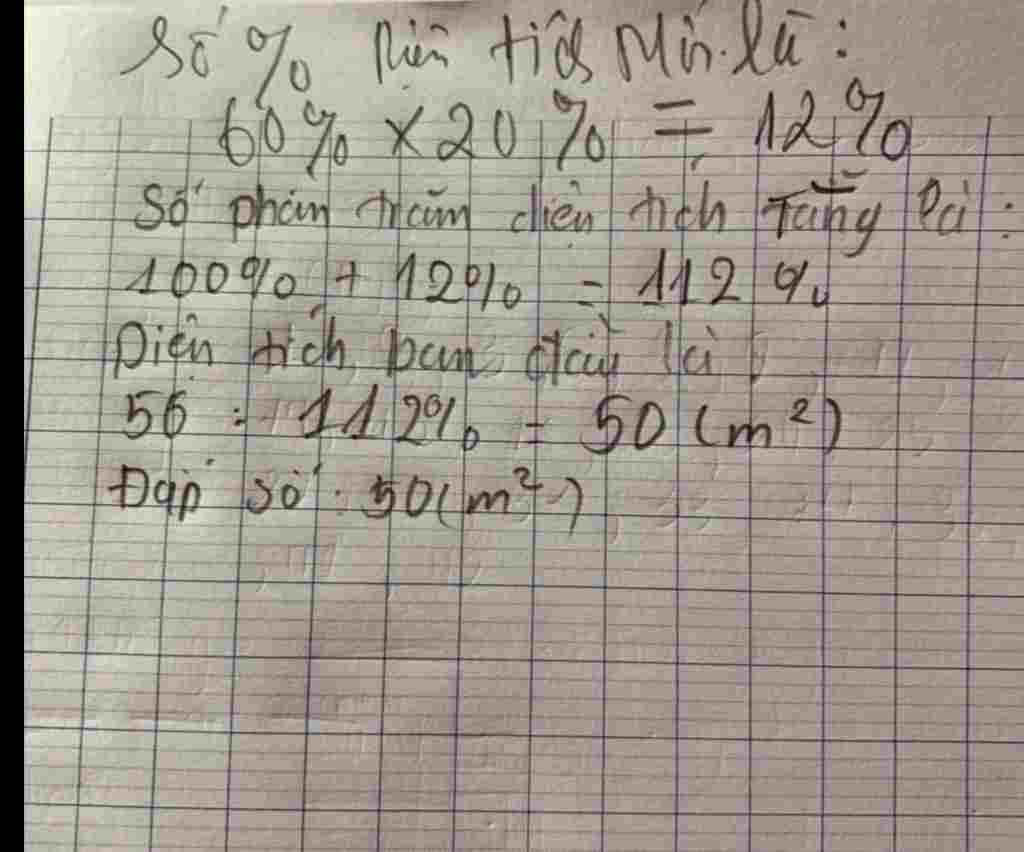 Số % Diện tích Mới là:
60% x 20% = 12%
Số phần trăm diện tích Tăng là:
100% + 12% = 112 %
Diện tích ban đầu là
56 : 112% = 50 (m²)
Đáp số: 50(m²)